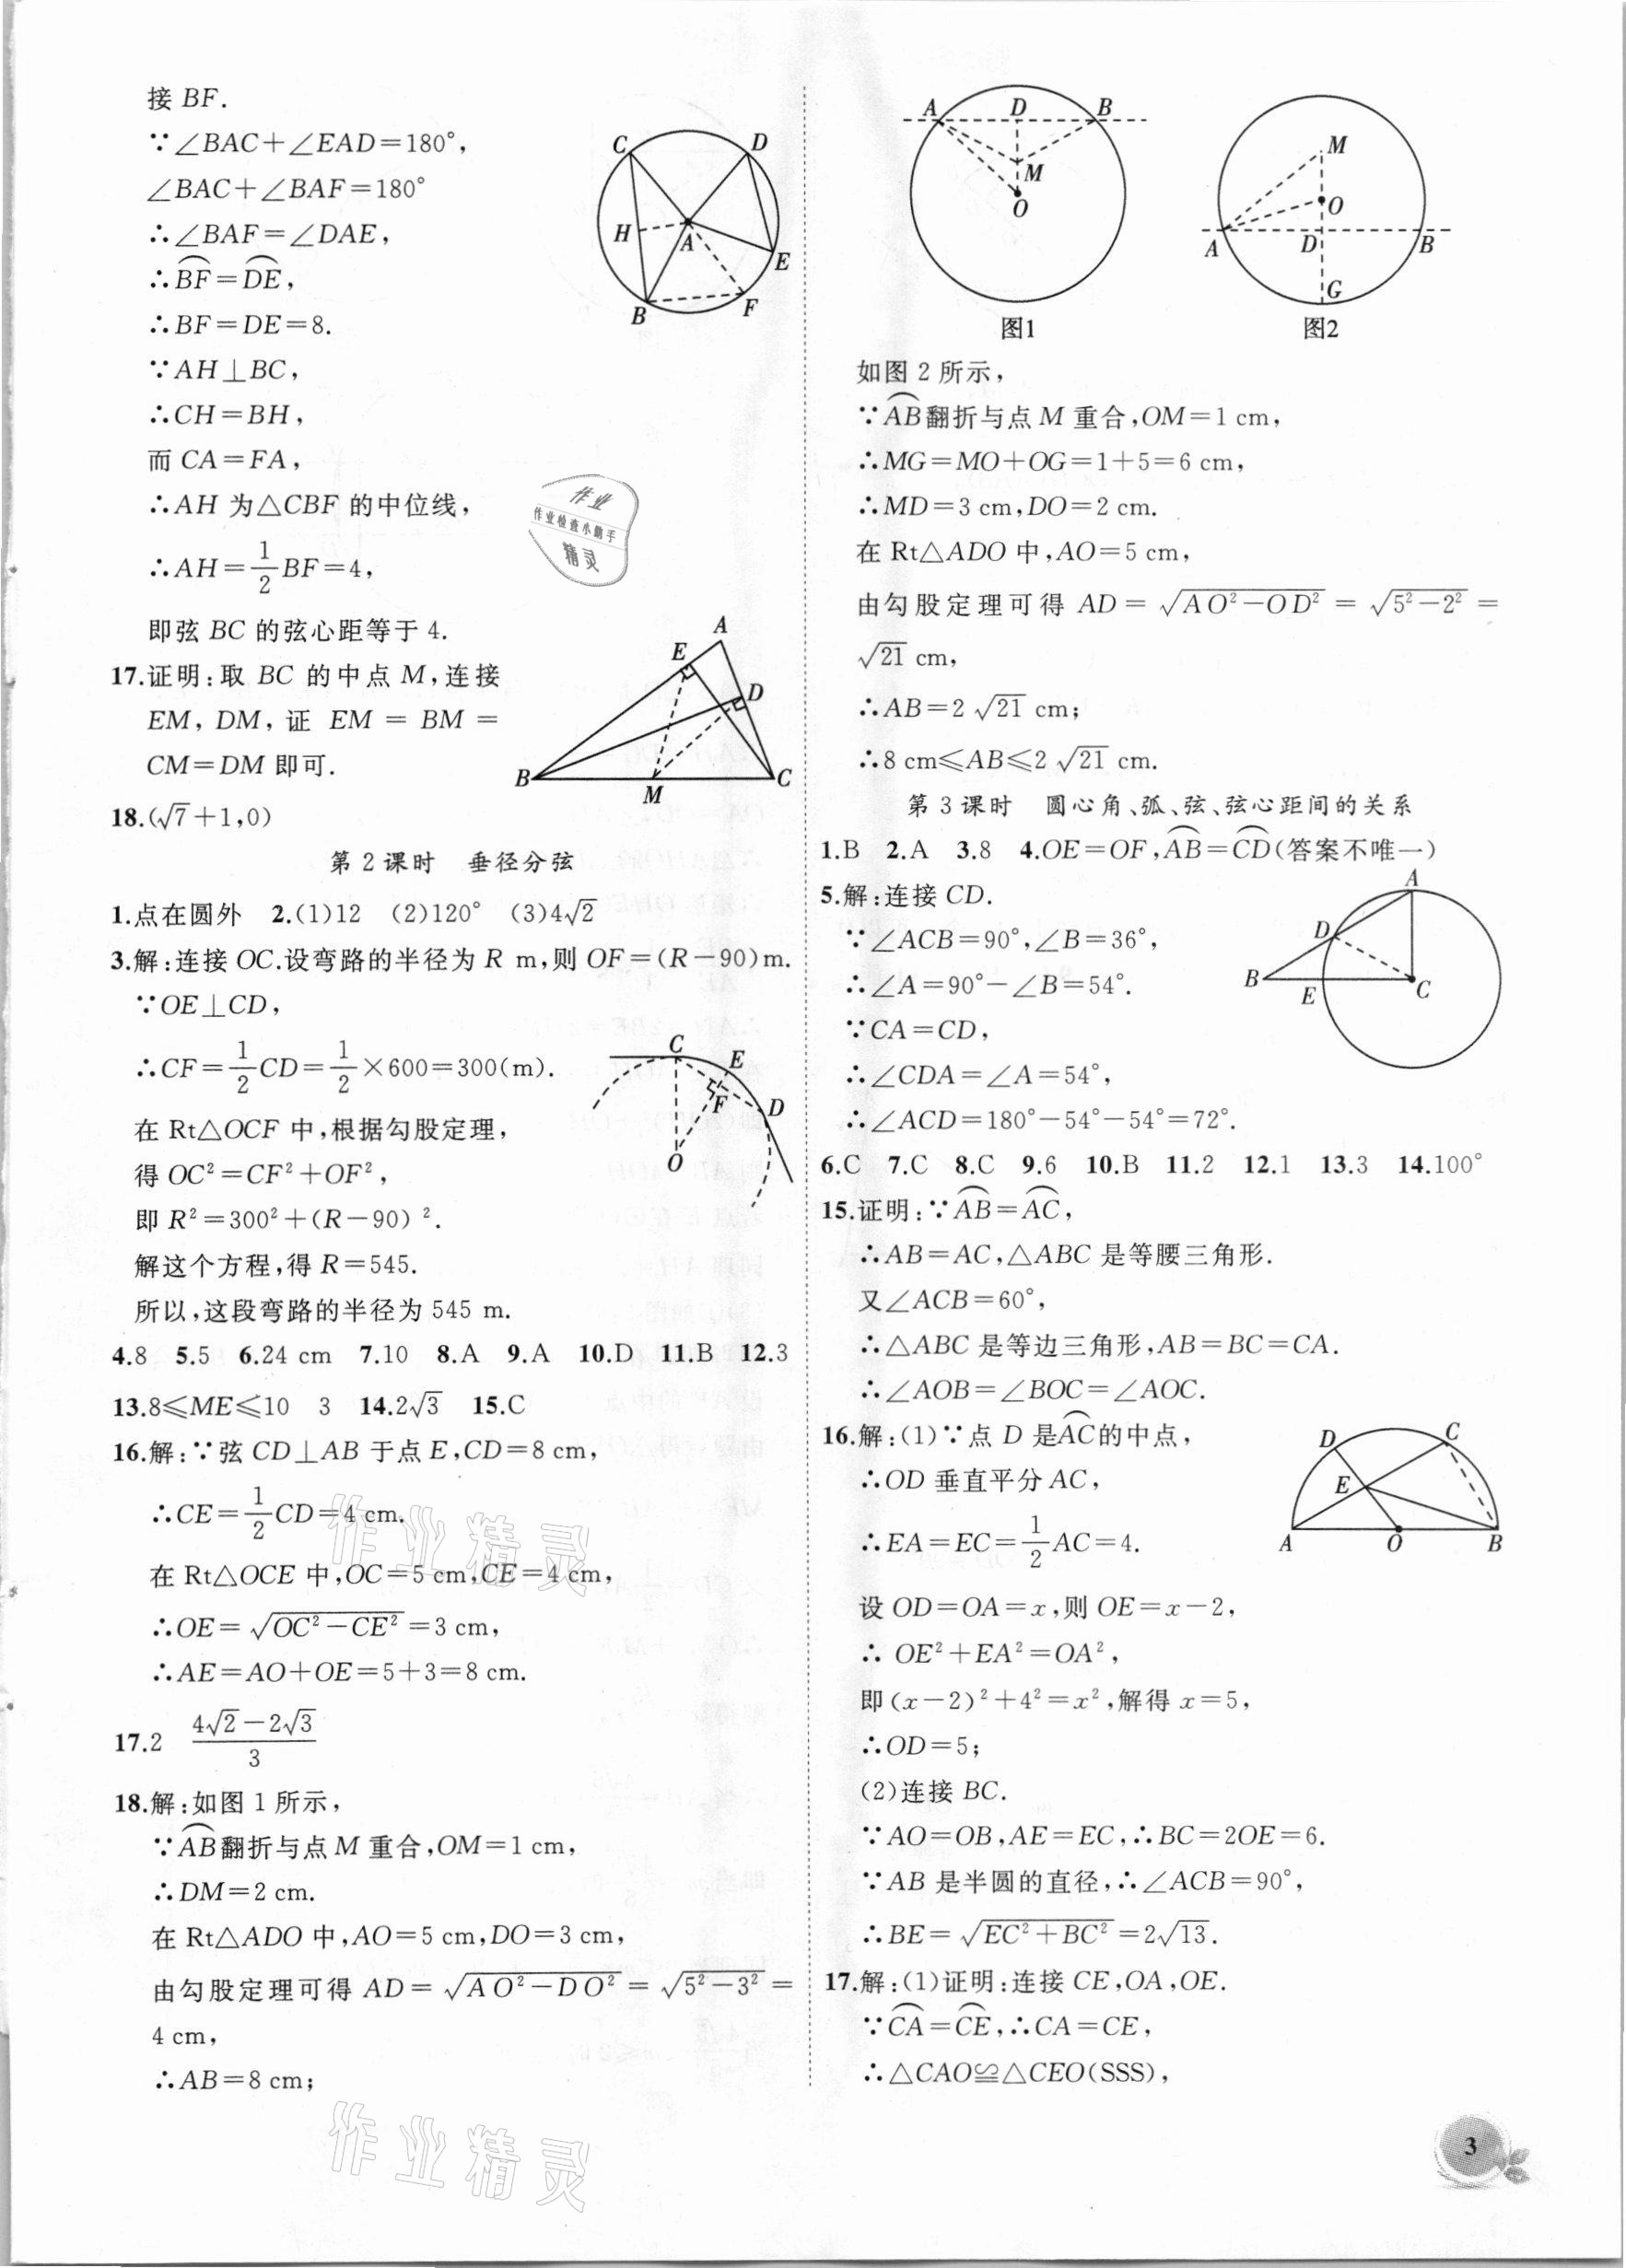 接 BF.
∵∠BAC+∠EAD=180°,
∠BAC+∠BAF=180°
∴∠BAF=∠DAE,
∴BF⌒=DE⌒,
∴BF=DE=8.
∵AH⊥BC,
∴CH=BH,
而 CA=FA,
∴AH 为△CBF 的中位线,
∴AH=1/2BF=4,
即弦 BC 的弦心距等于 4.
C D H A E B F
作业
作业检查小助手
精灵
17.证明:取 BC 的中点 M,连接
EM, DM, 证 EM = BM =
CM=DM 即可.
A E D B M C
18.(√7+1,0)
第 2 课时 垂径分弦
1.点在圆外 2.(1)12 (2)120° (3)4√2
3.解:连接 OC.设弯路的半径为 R m,则 OF=(R-90)m.
∵OE⊥CD,
∴CF=1/2CD=1/2×600=300(m).
在 Rt△OCF 中,根据勾股定理,
得 OC²=CF²+OF²,
即 R²=300²+(R-90)².
解这个方程,得 R=545.
所以,这段弯路的半径为 545 m.
C E F D O
4.8 5.5 6.24 cm 7.10 8.A 9.A 10.D 11.B 12.3
13.8≤ME≤10 3 14.2√3 15.C
16.解:∵弦 CD⊥AB 于点 E,CD=8 cm,
∴CE=1/2CD=4 cm.
在 Rt△OCE 中,OC=5 cm,CE=4 cm,
∴OE=√(OC²-CE²)=3 cm,
∴AE=AO+OE=5+3=8 cm.
作业精灵
17.2 (4√2-2√3)/3
18.解:如图 1 所示,
∵AB⌒翻折与点 M 重合,OM=1 cm,
∴DM=2 cm.
在 Rt△ADO 中,AO=5 cm,DO=3 cm,
由勾股定理可得 AD=√(AO²-DO²)=√(5²-3²)=
4 cm,
∴AB=8 cm;
作业精灵
A D B M O
图1
M O A D B G
图2
如图 2 所示,
∵AB⌒翻折与点 M 重合,OM=1 cm,
∴MG=MO+OG=1+5=6 cm,
∴MD=3 cm,DO=2 cm.
在 Rt△ADO 中,AO=5 cm,
由勾股定理可得 AD=√(AO²-OD²)=√(5²-2²)=
√21 cm,
∴AB=2√21 cm;
∴8 cm≤AB≤2√21 cm.
第 3 课时 圆心角、弧、弦、弦心距间的关系
1.B 2.A 3.8 4.OE=OF,AB⌒=CD⌒(答案不唯一)
5.解:连接 CD.
∵∠ACB=90°,∠B=36°,
∴∠A=90°-∠B=54°.
∵CA=CD,
∴∠CDA=∠A=54°,
∴∠ACD=180°-54°-54°=72°.
A D B E C
6.C 7.C 8.C 9.6 10.B 11.2 12.1 13.3 14.100°
15.证明:∵AB⌒=AC⌒,
∴AB=AC,△ABC 是等腰三角形.
又∠ACB=60°,
∴△ABC 是等边三角形,AB=BC=CA.
∴∠AOB=∠BOC=∠AOC.
16.解:(1)∵点 D 是AC⌒的中点,
∴OD 垂直平分 AC,
∴EA=EC=1/2AC=4.
设 OD=OA=x,则 OE=x-2,
∴ OE²+EA²=OA²,
即(x-2)²+4²=x²,解得 x=5,
∴OD=5;
(2)连接 BC.
∵AO=OB,AE=EC,∴BC=2OE=6.
∵AB 是半圆的直径,∴∠ACB=90°,
∴BE=√(EC²+BC²)=2√13.
D C E A O B
17.解:(1)证明:连接 CE,OA,OE.
∵CA⌒=CE⌒,∴CA=CE,
∴△CAO≌△CEO(SSS),
3